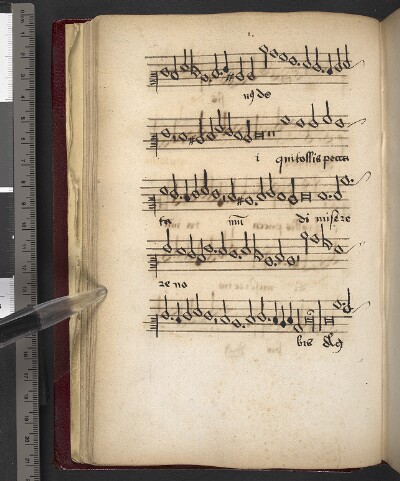 us de
i qui tollis pecca
ta mu di misere
re no
bis